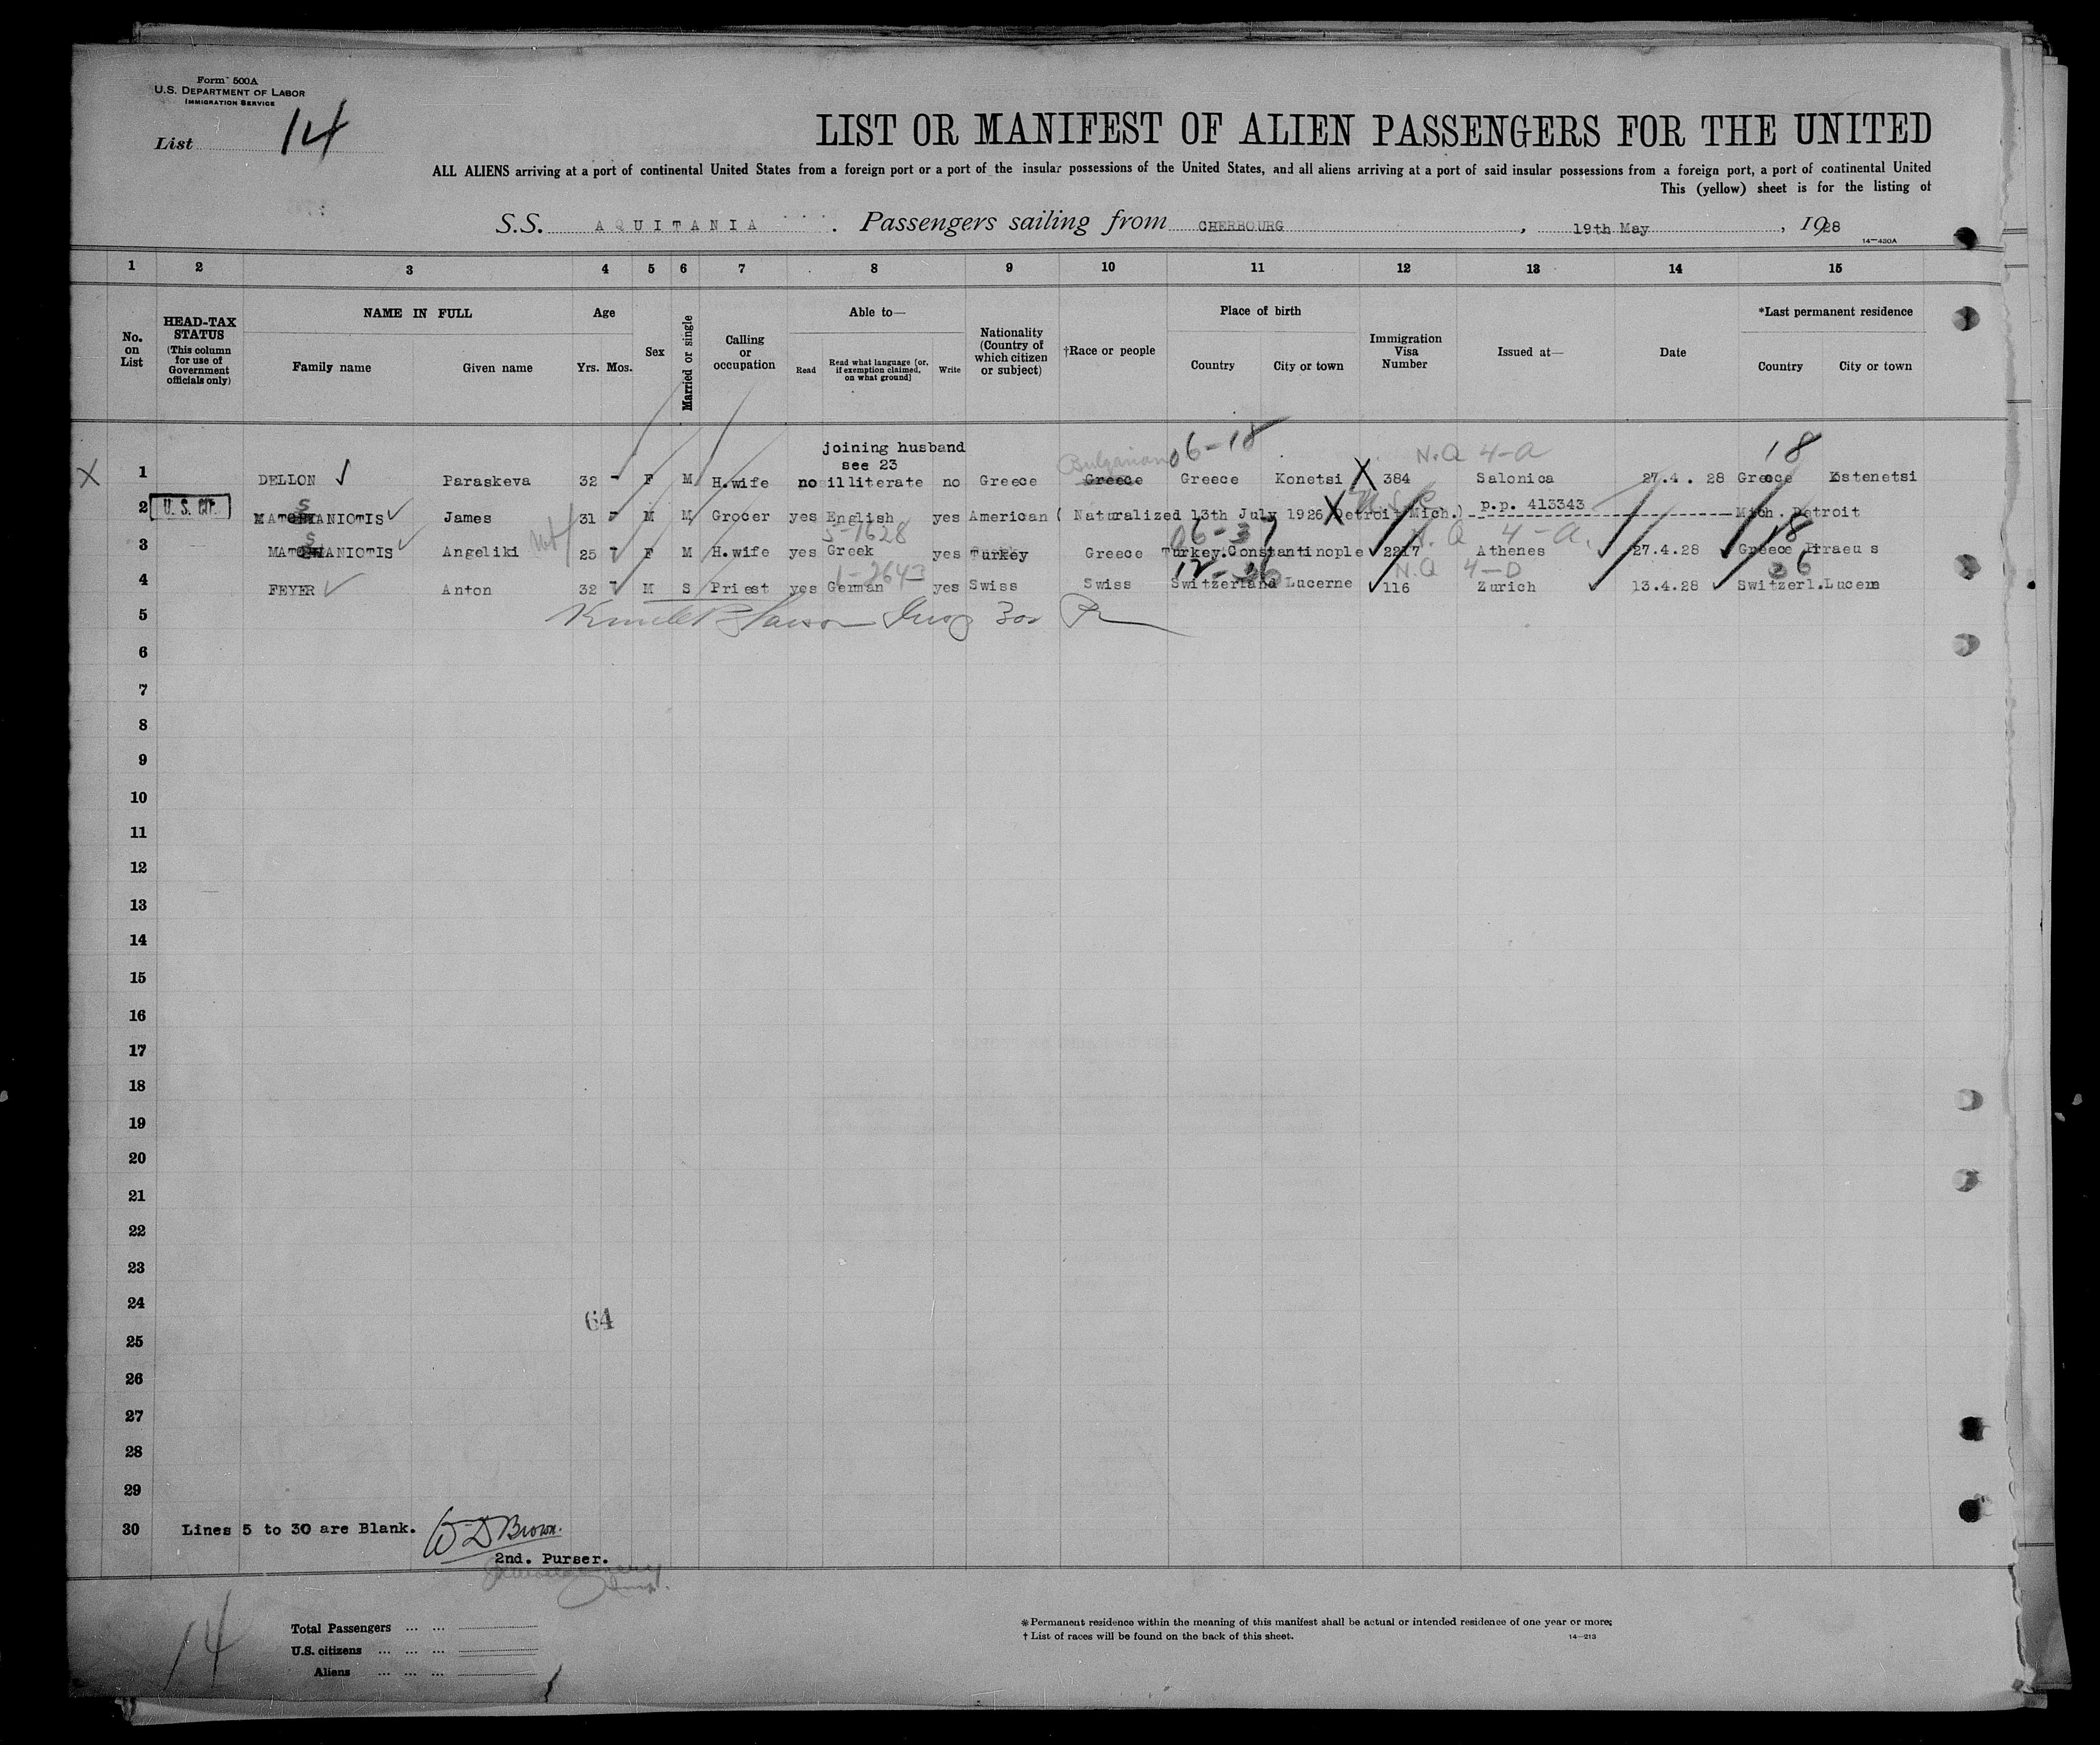 Form 500A
U.S. DEPARTMENT OF LABOR
IMMIGRATION SERVICE
List 14
LIST OR MANIFEST OF ALIEN PASSENGERS FOR THE UNITED
ALL ALIENS arriving at a port of continental United States from a foreign port or a port of the insular possessions of the United States, and all aliens arriving at a port of said insular possessions from a foreign port, a port of continental United
This (yellow) sheet is for the listing of
S.S. AQUITANIA . Passengers sailing from CHERBOURG , 19th May , 1928
14—430A
1 2 3 4 5 6 7 8 9 10 11 12 13 14 15
No. on List
HEAD-TAX STATUS (This column for use of Government officials only)
NAME IN FULL
Family name Given name
Age
Yrs. Mos.
Sex
Married or single
Calling or occupation
Able to—
Read Read what language [or, if exemption claimed, on what ground] Write
Nationality (Country of which citizen or subject)
†Race or people
Place of birth
Country City or town
Immigration Visa Number
Issued at—
Date
*Last permanent residence
Country City or town
joining husband 06-18 N.Q 4-A 18
see 23 Bulgarian
X 1 DELLON ✓ Paraskeva 32 - F M H.wife no illiterate no Greece Greece Greece Konetsi X 384 Salonica 27.4. 28 Greece Kostenetsi
2 U. S. CIT. S ANIOTIS ✓ James 31 - M M Grocer yes English yes American ( Naturalized 13th July 1926 Detroit Mich.) p.p. 413343 Mich. Detroit
5-1628 06-37 N.Q 4-A. 18
3 S ANIOTIS ✓ Angeliki 25 F M H.wife yes Greek yes Turkey Greece Turkey.Constantinople ✓ 2217 Athenes ✓ 27.4.28 ✓ Greece Piraeus
1-2643 12-36 N.Q 4-D 36
4 FEYER ✓ Anton 32 M S Priest yes German yes Swiss Swiss Switzerland Lucerne ✓ 116 Zurich ✓ 13.4.28 ✓ Switzerl.Lucern
5
6
7
8
9
10
11
12
13
14
15
16
17
18
19
20
21
22
23
24
64
25
26
27
28
29
30 Lines 5 to 30 are Blank. W D Brown.
2nd. Purser.
14
Total Passengers ... ...
U.S. citizens ... ... ...
Aliens ... ... ...
*Permanent residence within the meaning of this manifest shall be actual or intended residence of one year or more.
† List of races will be found on the back of this sheet. 14—213